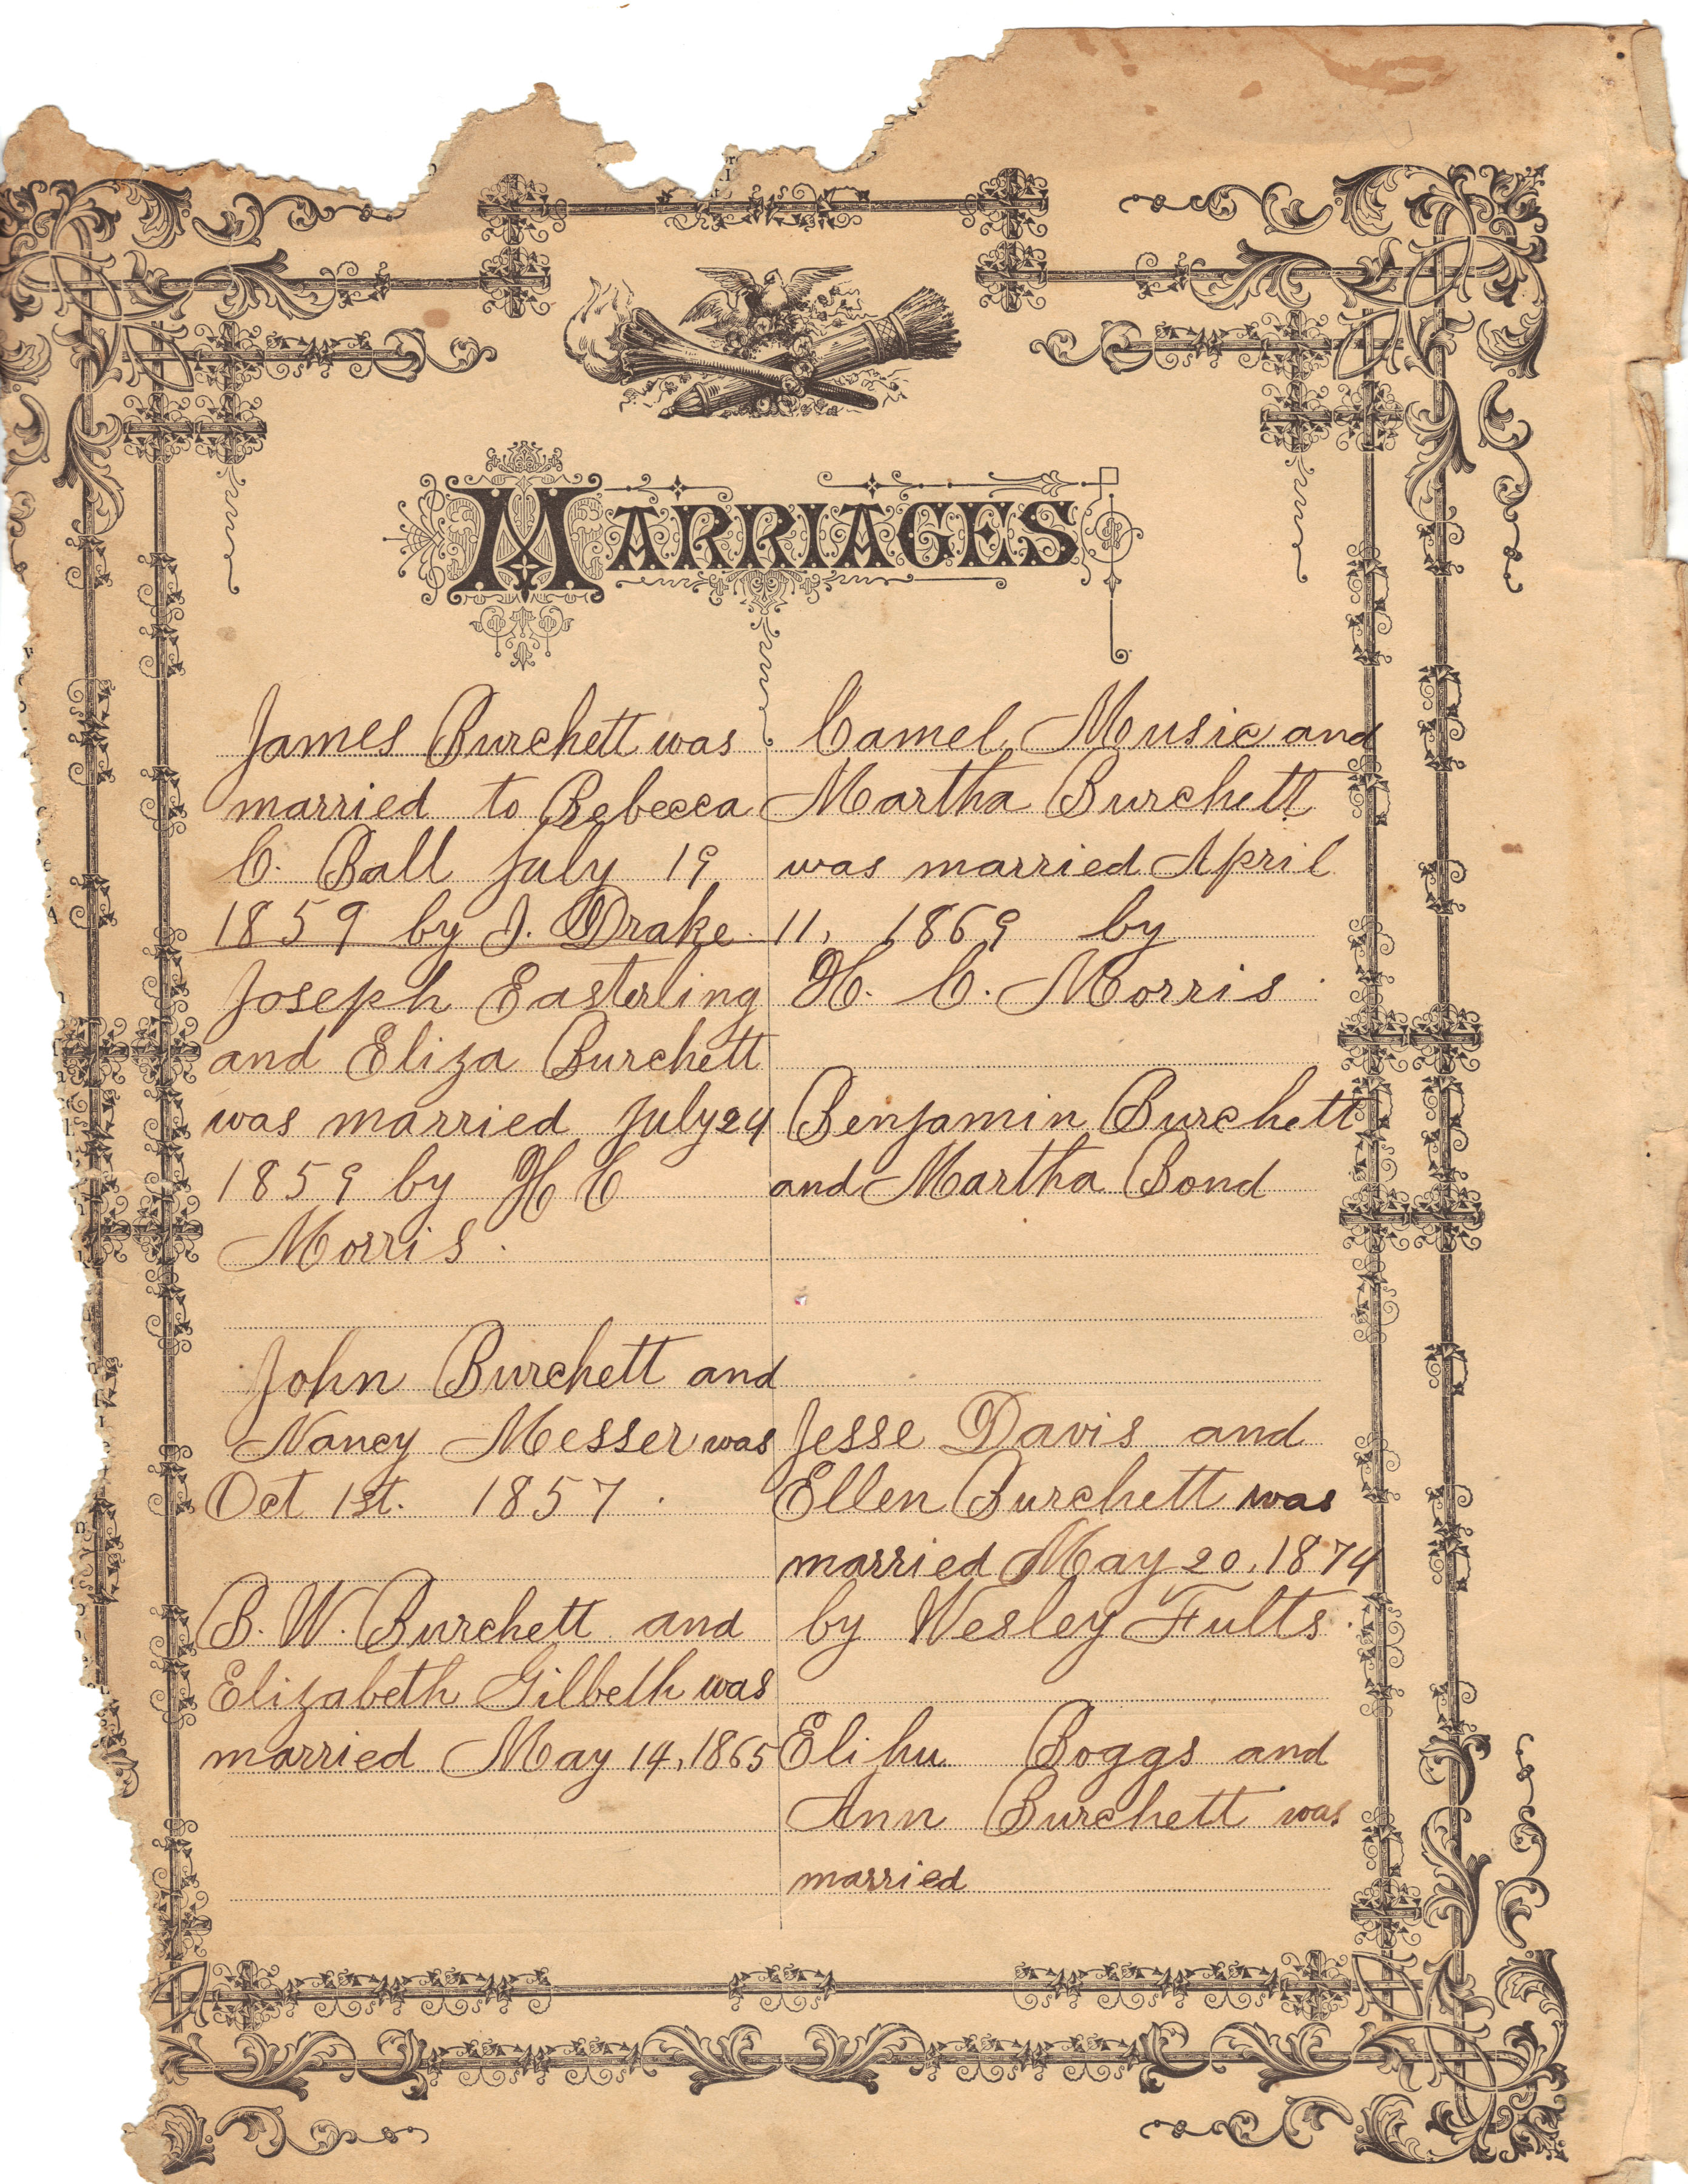 MARRIAGES
James Burchett was
married to Rebecca
C. Ball July 19
1859 by J. Drake.
Joseph Easterling
and Eliza Burchett
was married July 24
1859 by H C
Morris.
John Burchett and
Nancy Messer was
Oct 1st. 1857.
B. W. Burchett and
Elizabeth Gilbeth was
married May 14, 1865
Camel Music and
Martha Burchett
was married April
11, 1869 by
H. C. Morris.
Benjamin Burchett
and Martha Bond
Jesse Davis and
Ellen Burchett was
married May 20, 1874
by Wesley Fults.
Elihu Boggs and
Ann Burchett was
married